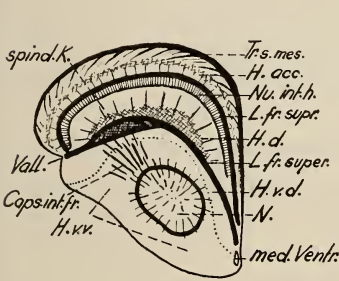 spind.K.
Vall.
Caps.int.fr.
H.v.v.
Tr.s.mes.
H. acc.
Nu. int.h.
L.fr.supr.
H.d.
L.fr.super.
H.v.d.
N.
med.Ventr.